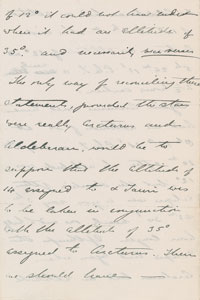 of 12° it could not have ended
when it had an altitude of
35° and necessarily sunrise
The only way of reconciling these
statements, provided the stars
were really Arcturus and
Aldebaran, would be to
suppose that the altitude of
14 assigned to α Tauri was
to be taken in conjunction
with the altitude of 35°
assigned to Arcturus. Then
we should have —